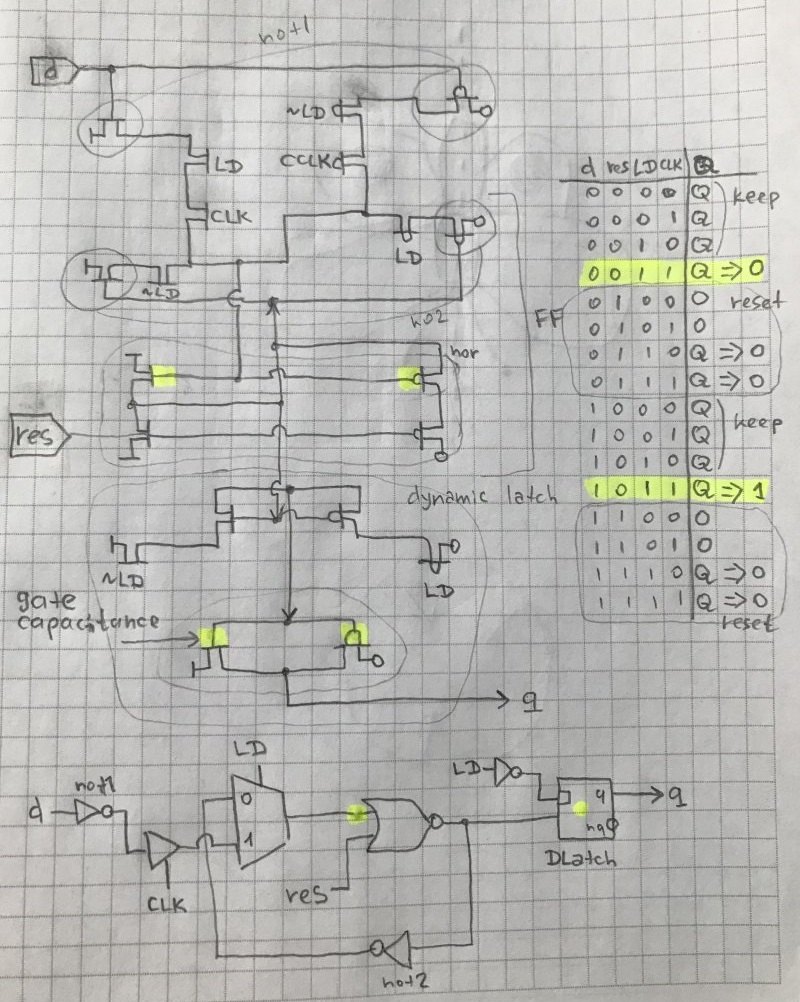 not1
d
~LD
LD
CCLK
CLK
LD
~LD
no2
FF
nor
res
dynamic latch
~LD
LD
gate
capacitance
q
d res LD CLK Q
0 0 0 0 Q
keep
0 0 0 1 Q
0 0 1 0 Q
0 0 1 1 Q => 0
0 1 0 0 0
reset
0 1 0 1 0
0 1 1 0 Q => 0
0 1 1 1 Q => 0
1 0 0 0 Q
keep
1 0 0 1 Q
1 0 1 0 Q
1 0 1 1 Q => 1
1 1 0 0 0
1 1 0 1 0
1 1 1 0 Q => 0
1 1 1 1 Q => 0
reset
LD
LD
not1
d
0
1
CLK
res
q
nq
q
DLatch
not2